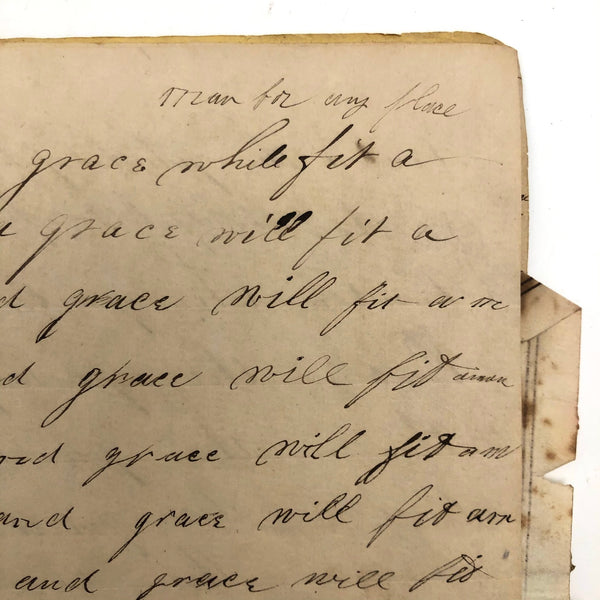 man for any place
grace while fit a
a grace will fit a
d grace will fit a m
d grace will fit aman
nd grace will fit am
and grace will fit am
and grace will fit